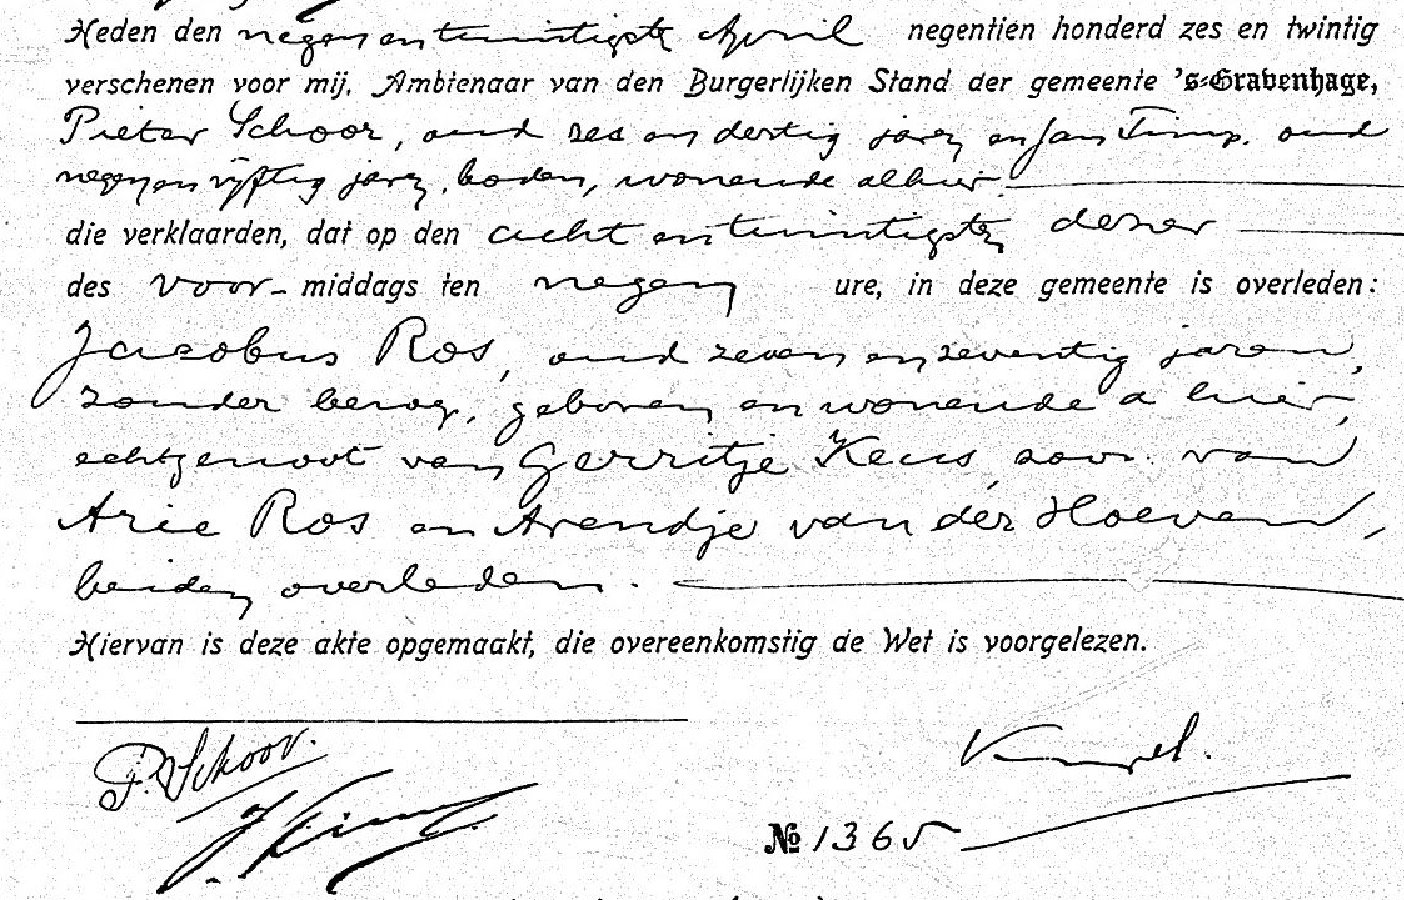 Heden den negen en twintigste April negentien honderd zes en twintig
verschenen voor mij, Ambtenaar van den Burgerlijken Stand der gemeente 's-Gravenhage,
Pieter Schoor, oud zes en dertig jaren en Jan Timp, oud
negen en vijftig jaren, boden, wonende alhier
die verklaarden, dat op den acht en twintigsten dezer
des voor- middags ten negen ure, in deze gemeente is overleden:
Jacobus Ros, oud zeven en zeventig jaren,
zonder beroep, geboren en wonende alhier,
echtgenoot van Gerritje Keus, zoon van
Arie Ros en Arendje van der Hoeven,
beiden overleden.
Hiervan is deze akte opgemaakt, die overeenkomstig de Wet is voorgelezen.
P. Schoor.
№ 1365